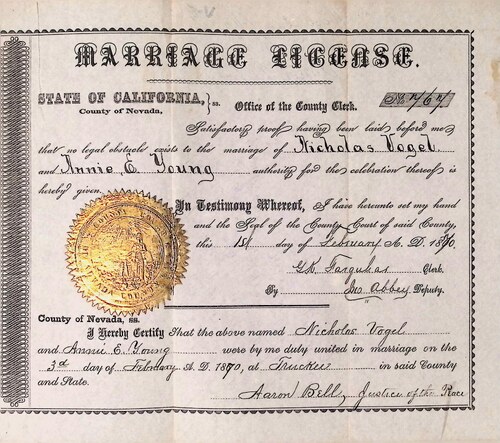 MARRIAGE LICENSE.
STATE OF CALIFORNIA, } ss. Office of the County Clerk. No. 767
County of Nevada,
Satisfactory proof having been laid before me
that no legal obstacle exists to the marriage of Nicholas Vogel
and Annie E. Young authority for the celebration thereof is
hereby given.
In Testimony Whereof, I have hereunto set my hand
and the Seal of the County Court of said County,
this 1st day of February A. D. 1870.
G.K. Farquhar Clerk.
By Jno Abbey Deputy.
County of Nevada, ss.
I Hereby Certify That the above named Nicholas Vogel
and Annie E. Young were by me duly united in marriage on the
3rd day of February A. D. 1870, at Truckee in said County
and State.
Aaron Bell, Justice of the Peace